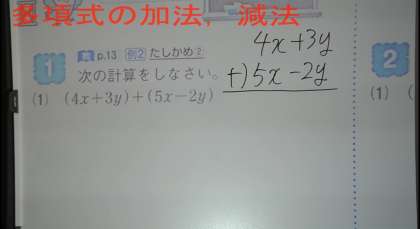 多項式の加法, 減法
1
p.13 例2 たしかめ2
次の計算をしなさい。
(1) (4x+3y)+(5x-2y)
4x+3y
+)5x-2y
2
(1) (